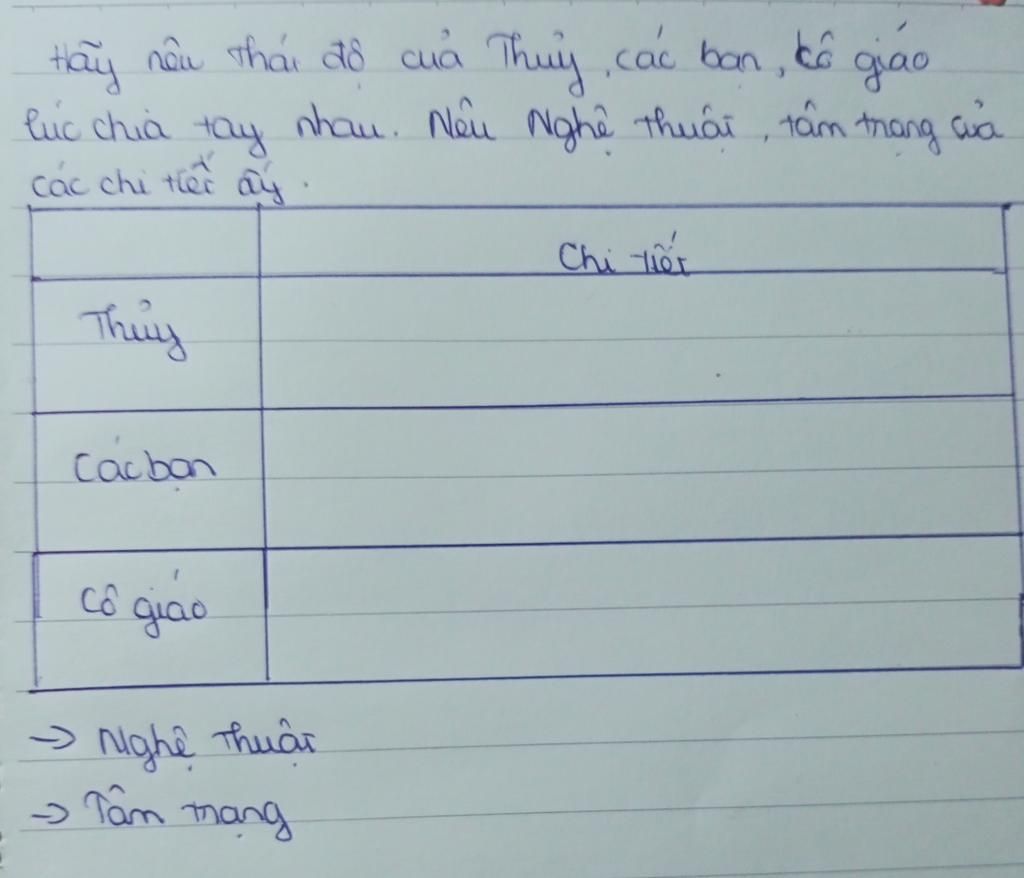 Hãy nêu thái độ của Thủy, các bạn, cô giáo
lúc chia tay nhau. Nêu Nghệ thuật, tâm trạng của
các chi tiết ấy.
Chi tiết
Thủy
Các bạn
Cô giáo
→ Nghệ thuật
→ Tâm trạng